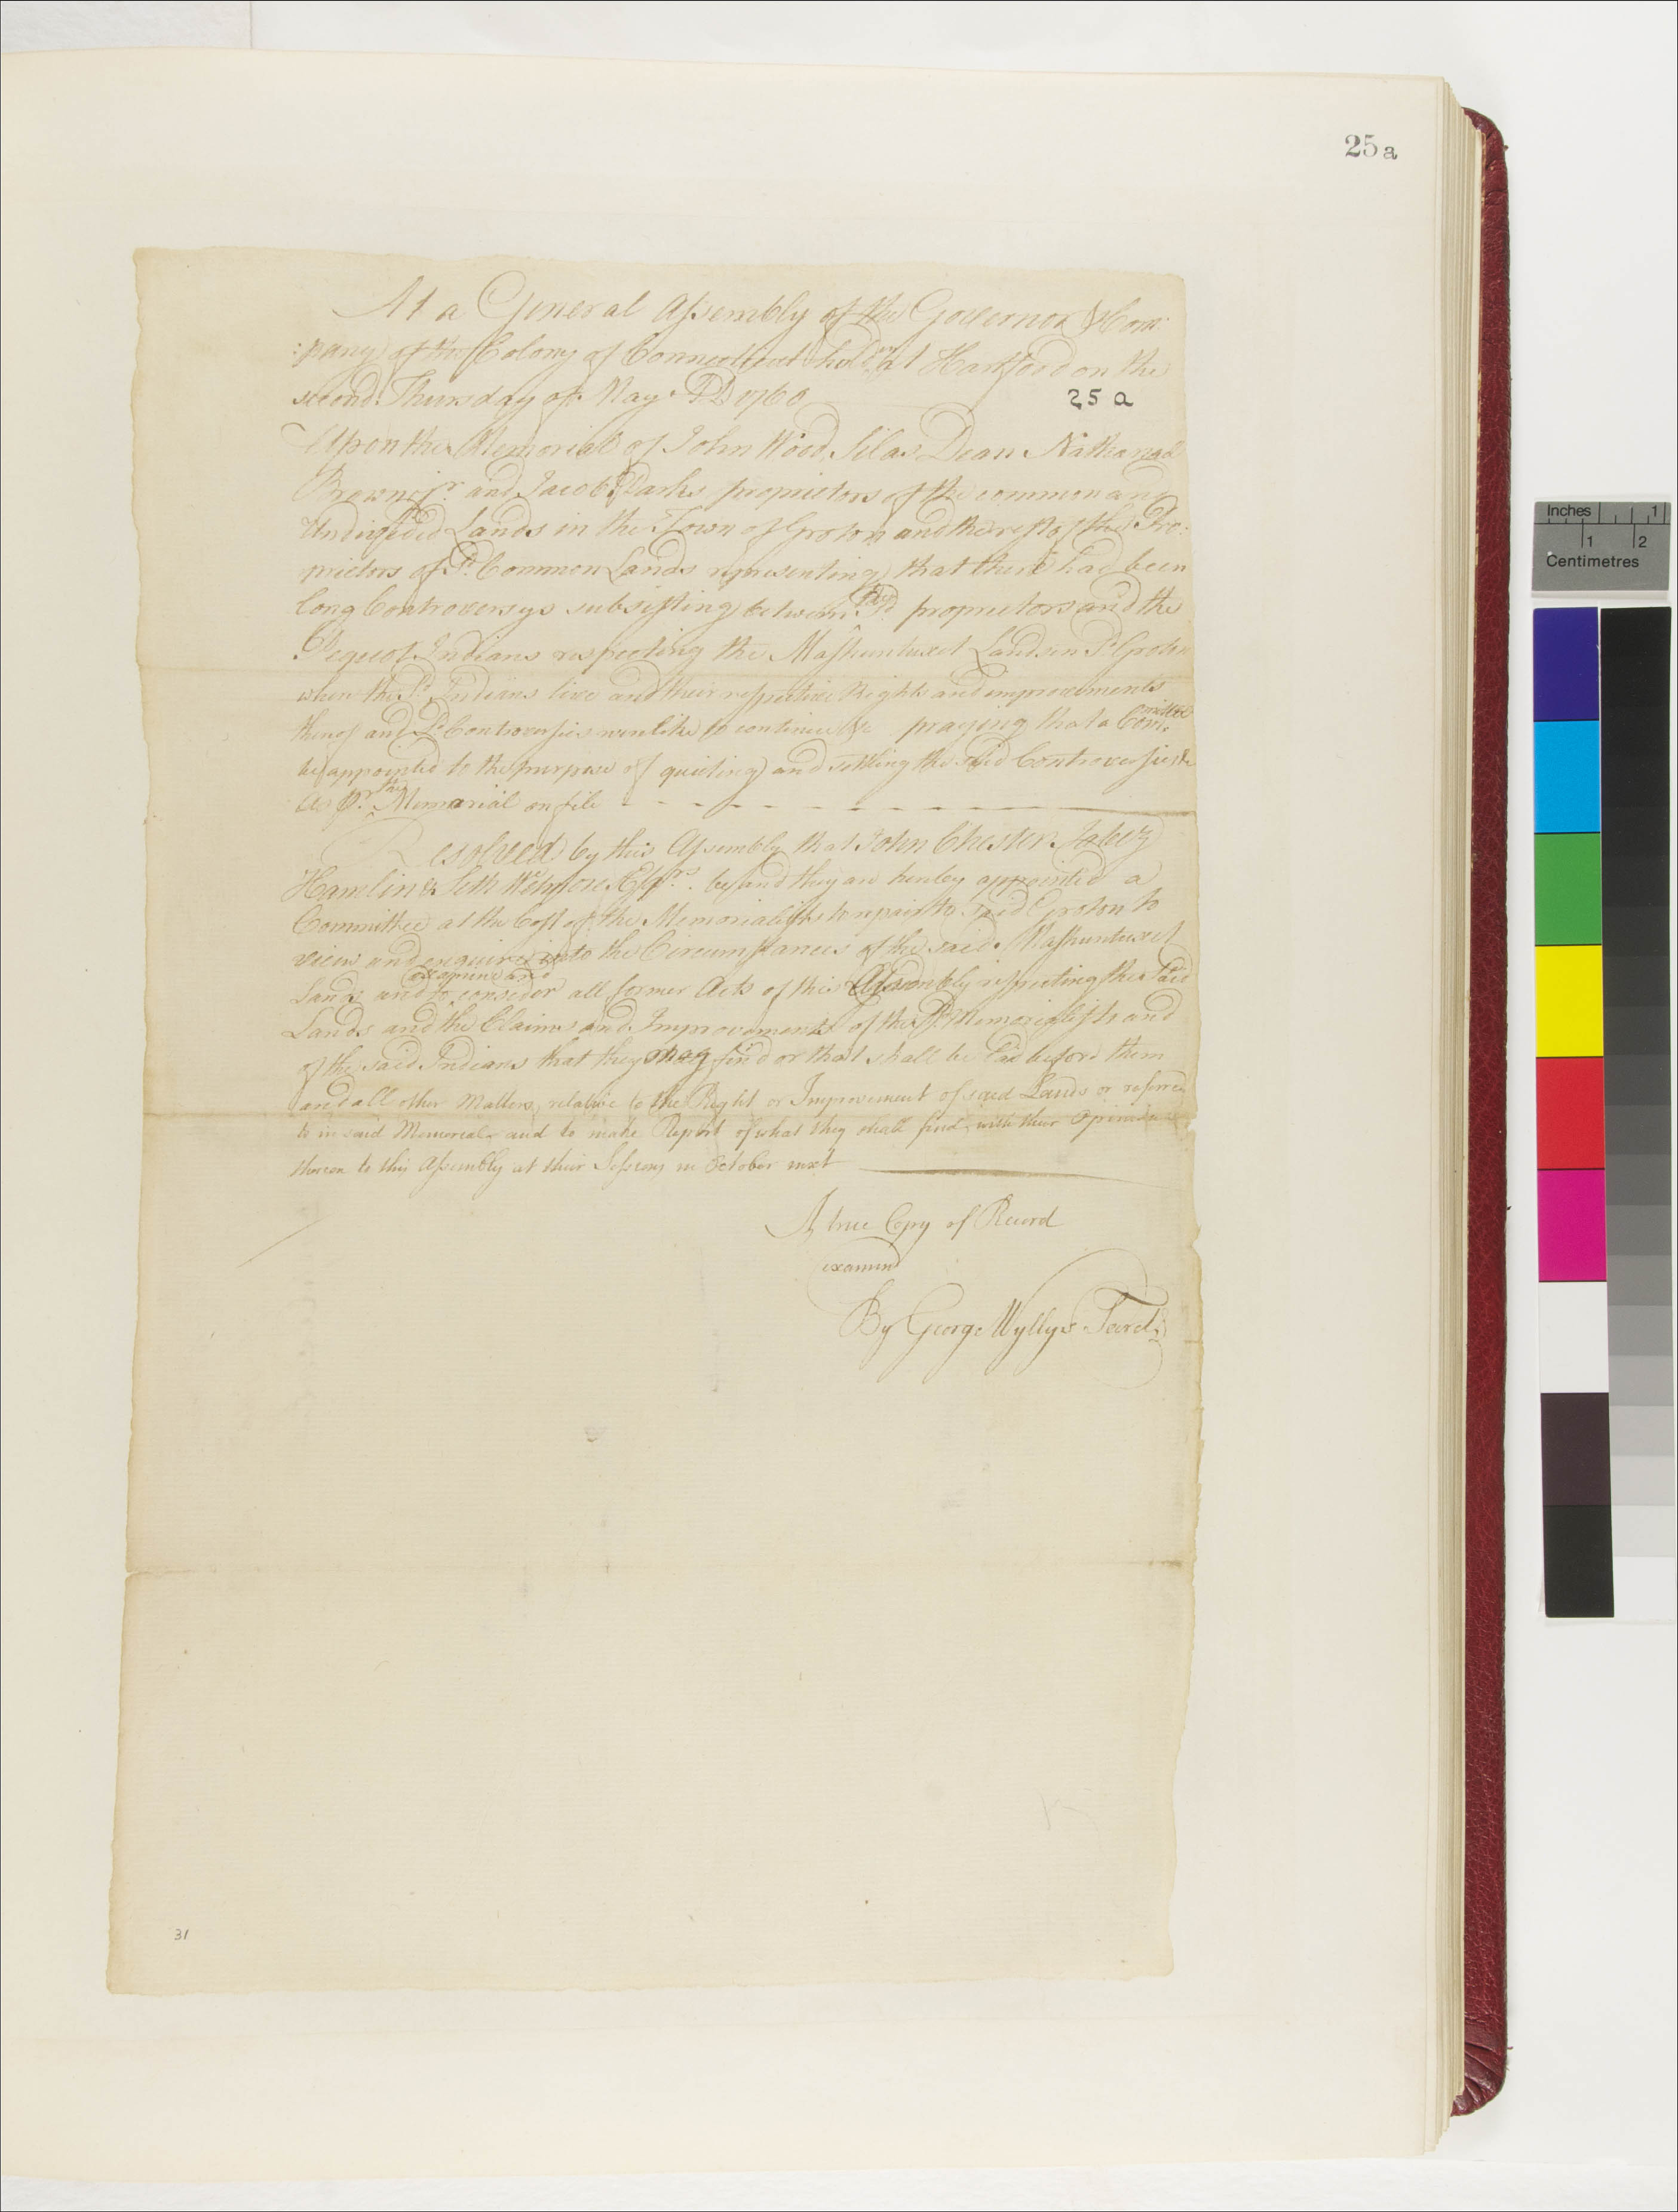 25a
At a General Assembly of the Governor & Com:
:pany of the Colony of Connecticut held at Hartford on the
second Thursday of May AD 1760
25 a
Upon the Memorial of John Wood, Silas Dean Nathanael
Brown jr. and Jacob Parks proprietors of the common and
Undivided Lands in the Town of Groton and the rest of the Pro:
prietors of sd. Common Lands representing that there had been
long Controversys subsisting between the sd. proprietors and the
Pequot Indians respecting the Mashuntuxet Lands in sd. Groton
where the sd. Indians live and their respective Rights and improvements
thereof and sd. Controversies were like to continue &c praying that a Comittee
be appointed to the purpose of quieting and settling the said Controversies &c
As pr. the Memorial on file
Resolved by this Assembly that John Chester Jabez
Hamlin & Seth Wetmore Esqrs. be and they are hereby appointed a
Committee at the Cost of the Memorialists to repair to said Groton to
view and enquire into the Circumstances of the said Mashuntuxet
Lands and to examine and consider all former Acts of this Assembly respecting the said
Lands and the Claims and Improvements of the sd. Memorialists and
of the said Indians that they may find or that shall be laid before them
and all other Matters relative to the Right or Improvement of said Lands or referred
to in said Memorial and to make Report of what they shall find with their Opinion
thereon to this Assembly at their Sessions in October next
A true Copy of Record
Examind
By George Wyllys Secret.
31